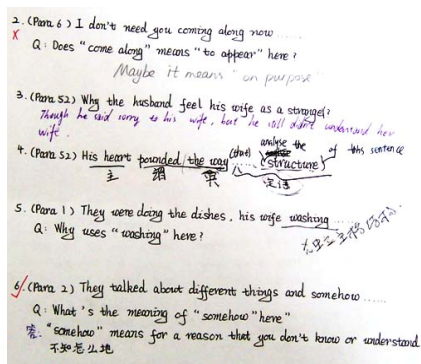 2. (Para 6) I don't need you coming along now ......
X
Q: Does "come along" means "to appear" here?
Maybe it means "on purpose"
3. (Para 52) Why the husband feel his wife as a stranger?
Though he said sorry to his wife, but he still didn't understand her
wife.
4. (Para 52) His heart pounded the way (that) analyse the (structure) of this sentence
主 谓 宾 定语
5. (Para 1) They were doing the dishes, his wife washing ......
Q: Why uses "washing" here?
6. (Para 2) They talked about different things and somehow ......
Q: What's the meaning of "somehow" here"
答: "somehow" means for a reason that you don't know or understand
不知怎么地